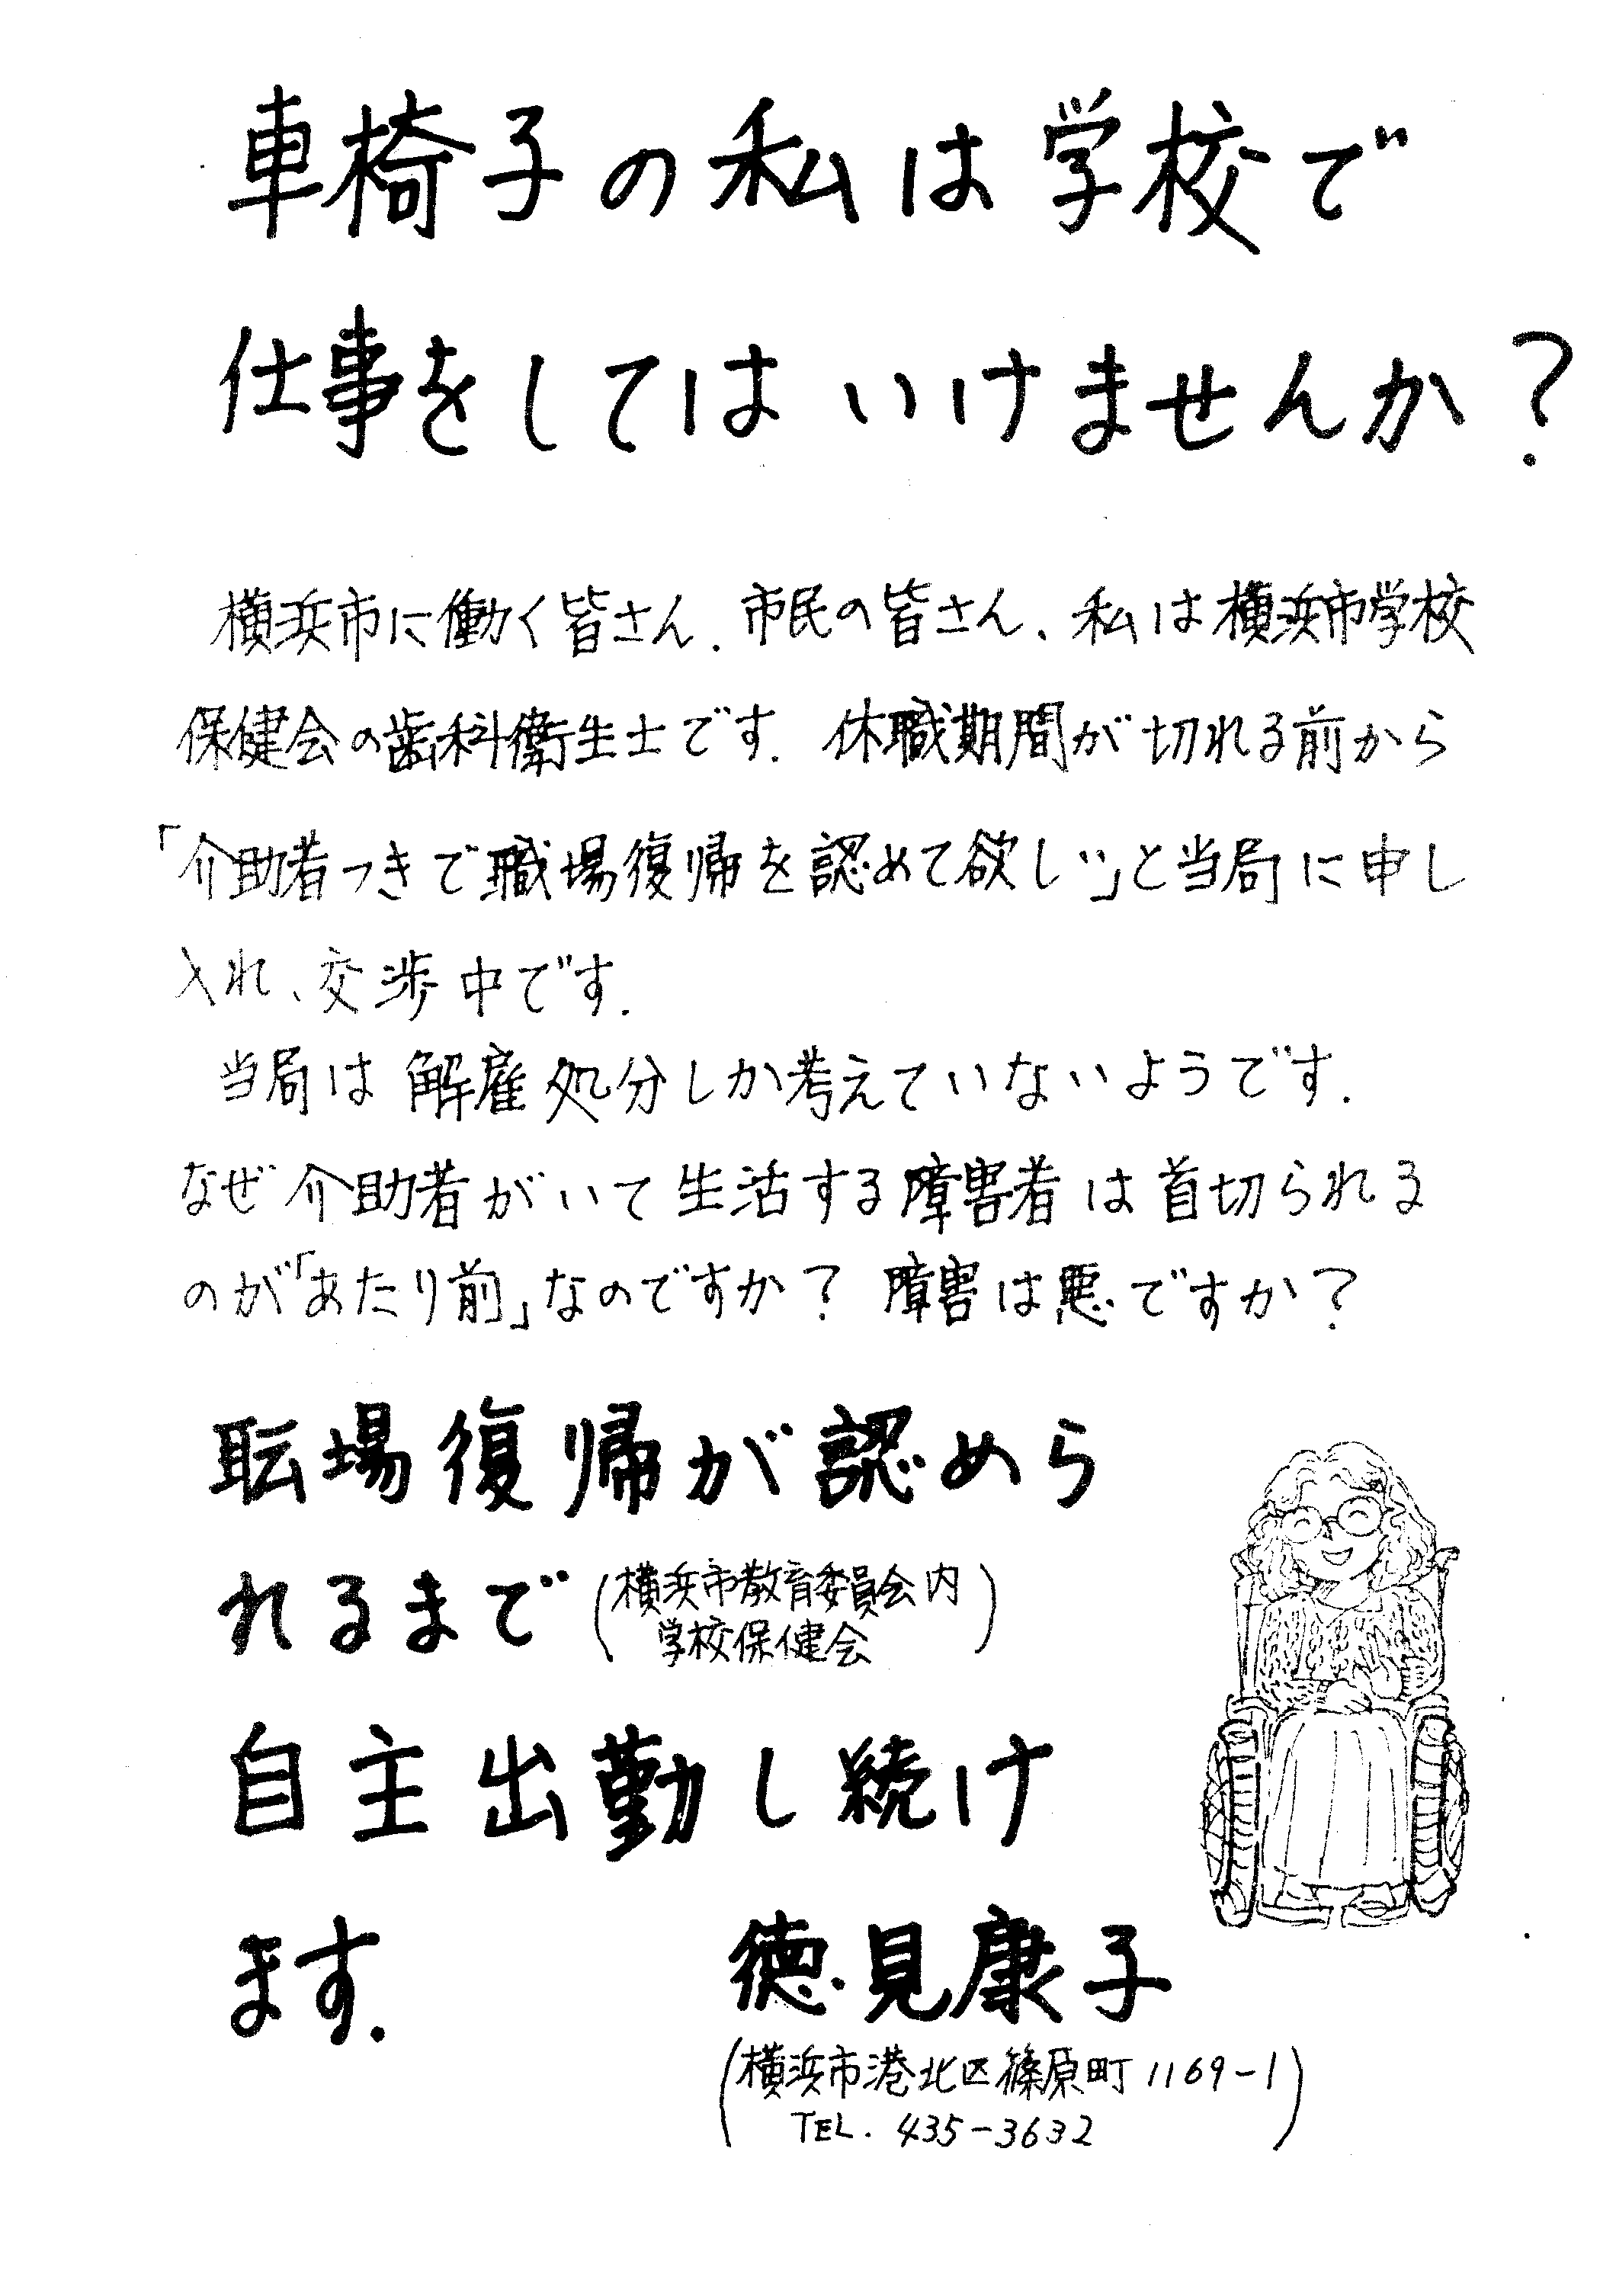 車椅子の私は学校で
仕事をしてはいけませんか?
横浜市に働く皆さん.市民の皆さん、私は横浜市学校
保健会の歯科衛生士です.休職期間が切れる前から
「介助者つきで職場復帰を認めて欲しい」と当局に申し
入れ、交渉中です.
当局は解雇処分しか考えていないようです.
なぜ介助者がいて生活する障害者は首切られる
のが「あたり前」なのですか?障害は悪ですか?
耺場復帰が認めら
れるまで(横浜市教育委員会内
学校保健会)
自主出勤し続け
ます.
徳見康子
(横浜市港北区篠原町1169-1
TEL.435-3632)